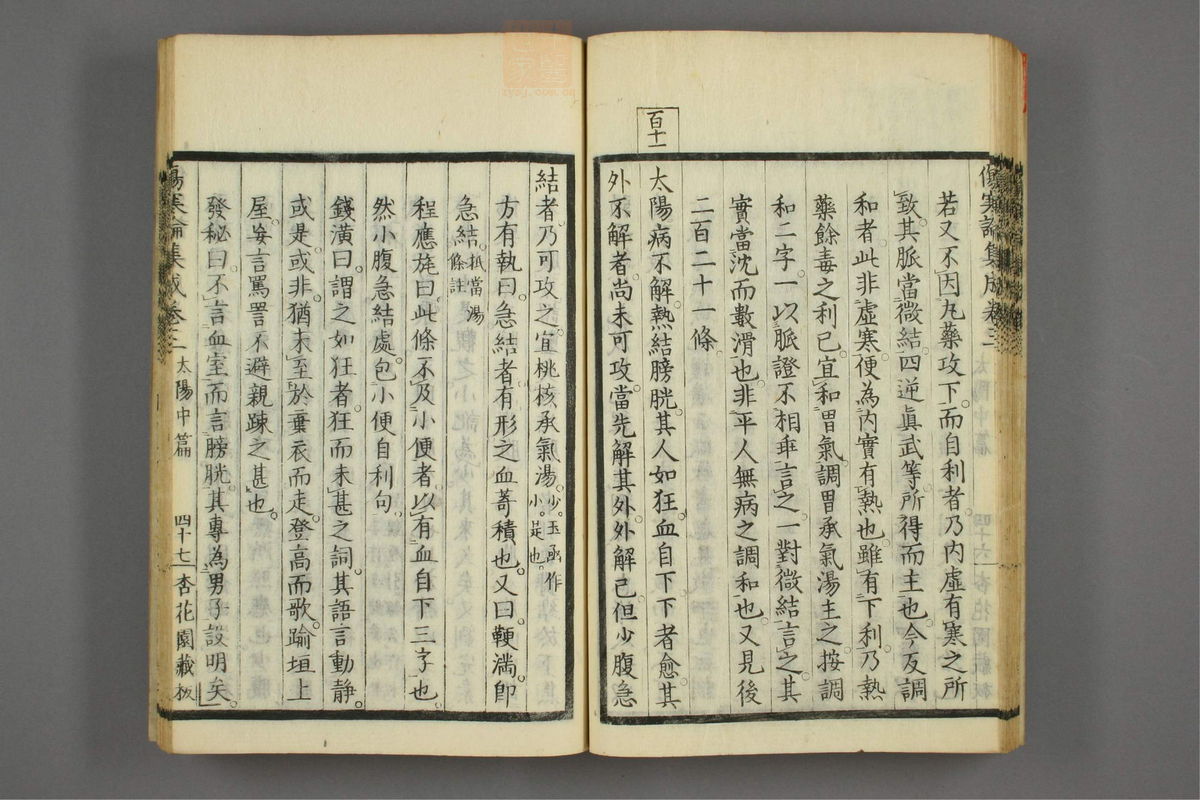 若又不因丸藥攻下而自利者乃内虛有寒之所
致其脈當微結四逆眞武等所得而主也今反調
和者此非虛寒便為内實有熱也雖有下利乃熱
藥餘毒之利已宜和胃氣調胃承氣湯主之按調
和二字一以脈證不相乖言之一對微結言之其
實當沈而數滑也非平人無病之調和也又見後
二百二十一條
百十一
太陽病不解熱結膀胱其人如狂血自下下者愈其
外不解者尚未可攻當先解其外外解已但少腹急
傷寒論集成卷三 太陽中篇 四十六 杏花園藏板
結者乃可攻之宜桃核承氣湯 少玉函作
小是也
方有執曰急結者有形之血蓄積也又曰鞕滿即
急結 抵當湯
條註
程應旄曰此條不及小便者以有血自下三字也
然小腹急結處包小便自利句
錢潢曰謂之如狂者狂而未甚之詞其語言動靜
或是或非猶未至於棄衣而走登高而歌踰垣上
屋妄言罵詈不避親踈之甚也
發秘曰不言血室而言膀胱其專為男子設明矣
傷寒論集成卷三 太陽中篇 四十七 杏花園藏板